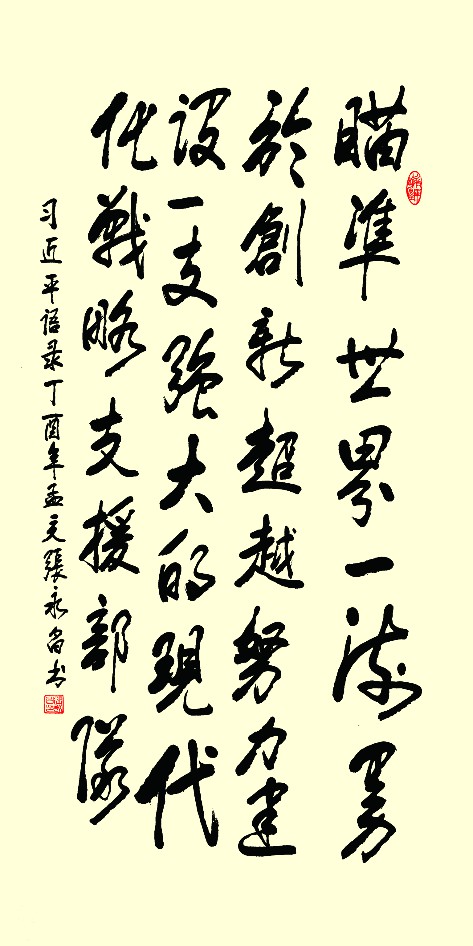 瞄準世界一流勇
於創新超越努力建
設一支強大的現代
化戰略支援部隊
习近平语录丁酉年孟張永昌书